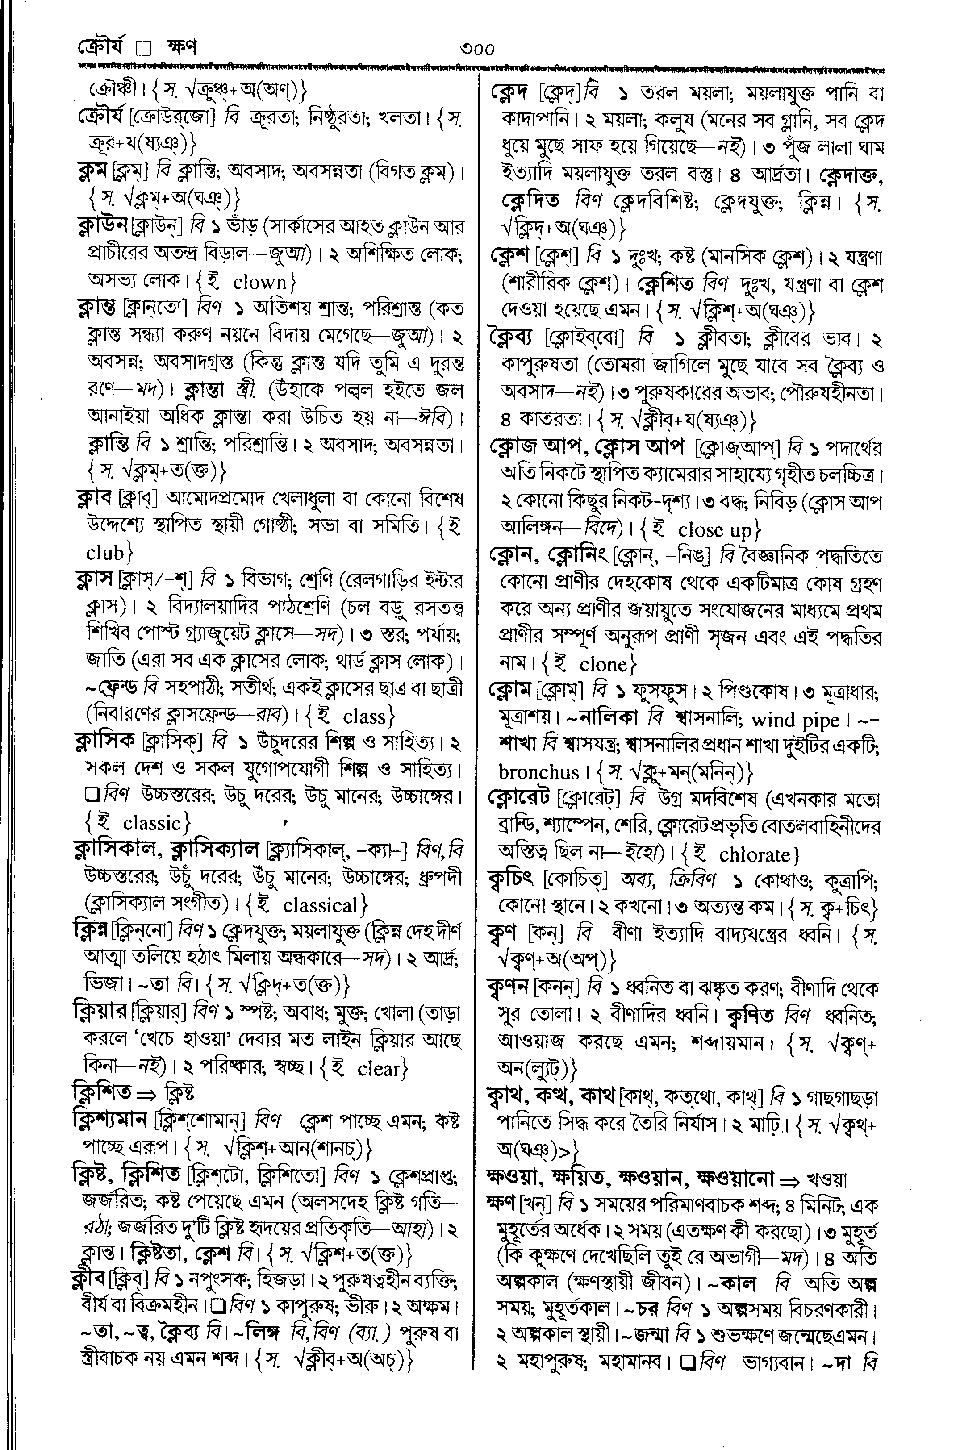 ক্রৌর্য □ ক্ষণ
৩০০
ক্রৌঞ্চী। {স. √ক্রুঞ্চ্+অ(অণ্)}
ক্রৌর্য [ক্রোউর্‌জো] বি ক্রূরতা; নিষ্ঠুরতা; খলতা। {স.
ক্রূর+য(ষ্যঞ্)}
ক্লম [ক্লম্] বি ক্লান্তি; অবসাদ; অবসন্নতা (বিগত ক্লম)।
{স. √ক্লম্+অ(ঘঞ্)}
ক্লাউন [ক্লাউন্] বি ১ ভাঁড় (সার্কাসের আহত ক্লাউন আর
প্রাচীরের অতন্দ্র বিড়াল—জুআ)। ২ অশিক্ষিত লোক;
অসভ্য লোক। {ই clown}
ক্লান্ত [ক্লান্‌তো] বিণ ১ অতিশয় শ্রান্ত; পরিশ্রান্ত (কত
ক্লান্ত সন্ধ্যা করুণ নয়নে বিদায় মেগেছে—জুআ)। ২
অবসন্ন; অবসাদগ্রস্ত (কিন্তু ক্লান্ত যদি তুমি এ দুরন্ত
রণে—মদ)। ক্লান্তা স্ত্রী. (উহাকে পল্বল হইতে জল
আনাইয়া অধিক ক্লান্তা করা উচিত হয় না—ঈবি)।
ক্লান্তি বি ১ শ্রান্তি; পরিশ্রান্তি। ২ অবসাদ; অবসন্নতা।
{স. √ক্লম্+ত(ক্ত)}
ক্লাব [ক্লাব্] আমোদপ্রমোদ খেলাধুলা বা কোনো বিশেষ
উদ্দেশ্যে স্থাপিত স্থায়ী গোষ্ঠী; সভা বা সমিতি। {ই
club}
ক্লাস [ক্লাস্/-শ্] বি ১ বিভাগ; শ্রেণি (রেলগাড়ির ইন্টার
ক্লাস)। ২ বিদ্যালয়াদির পাঠশ্রেণি (চল বড়ু রসতত্ত্ব
শিখিব পোস্ট গ্র্যাজুয়েট ক্লাসে—সদ)। ৩ স্তর; পর্যায়;
জাতি (এরা সব এক ক্লাসের লোক; থার্ড ক্লাস লোক)।
~ফ্রেন্ড বি সহপাঠী; সতীর্থ; একই ক্লাসের ছাত্র বা ছাত্রী
(নিবারণের ক্লাসফ্রেন্ড—রাব)। {ই class}
ক্লাসিক [ক্লাসিক্] বি ১ উঁচুদরের শিল্প ও সাহিত্য। ২
সকল দেশ ও সকল যুগোপযোগী শিল্প ও সাহিত্য।
❑ বিণ উচ্চস্তরের; উঁচু দরের; উঁচু মানের; উচ্চাঙ্গের।
{ই classic}
ক্লাসিকাল, ক্লাসিক্যাল [ক্ল্যাসিকাল্, -ক্যা-] বিণ, বি
উচ্চস্তরের; উঁচু দরের; উঁচু মানের; উচ্চাঙ্গের; ধ্রুপদী
(ক্লাসিক্যাল সংগীত)। {ই classical}
ক্লিন্ন [ক্লিন্‌নো] বিণ ১ ক্লেদযুক্ত; ময়লাযুক্ত (ক্লিন্ন দেহ দীর্ণ
আত্মা তলিয়ে হঠাৎ মিলায় অন্ধকারে—সদ)। ২ আর্দ্র;
ভিজা। ~তা বি। {স. √ক্লিদ্+ত(ক্ত)}
ক্লিয়ার [ক্লিয়ার্] বিণ ১ স্পষ্ট; অবাধ; মুক্ত; খোলা (তাড়া
করলে ‘খেচে হাওয়া’ দেবার মত লাইন ক্লিয়ার আছে
কিনা—নই)। ২ পরিষ্কার; স্বচ্ছ। {ই clear}
ক্লিশিত ⇒ ক্লিষ্ট
ক্লিশ্যমান [ক্লিশ্‌শোমান্] বিণ ক্লেশ পাচ্ছে এমন; কষ্ট
পাচ্ছে এরূপ। {স. √ক্লিশ্+আন(শানচ্)}
ক্লিষ্ট, ক্লিশিত [ক্লিশ্‌টো, ক্লিশিতো] বিণ ১ ক্লেশপ্রাপ্ত;
জর্জরিত; কষ্ট পেয়েছে এমন (অলসদেহ ক্লিষ্ট গতি—
রঠা; জর্জরিত দু’টি ক্লিষ্ট হৃদয়ের প্রতিকৃতি—আহা)। ২
ক্লান্ত। ক্লিষ্টতা, ক্লেশ বি। {স. √ক্লিশ্+ত(ক্ত)}
ক্লীব [ক্লিব্] বি ১ নপুংসক; হিজড়া। ২ পুরুষত্বহীন ব্যক্তি;
বীর্য বা বিক্রমহীন। ❑ বিণ ১ কাপুরুষ; ভীরু। ২ অক্ষম।
~তা, ~ত্ব, ক্লৈব্য বি। ~লিঙ্গ বি, বিণ (ব্যা.) পুরুষ বা
স্ত্রীবাচক নয় এমন শব্দ। {স. √ক্লীব্+অ(অচ্)}
ক্লেদ [ক্লেদ্] বি ১ তরল ময়লা; ময়লাযুক্ত পানি বা
কাদাপানি। ২ ময়লা; কলুষ (মনের সব গ্লানি, সব ক্লেদ
ধুয়ে মুছে সাফ হয়ে গিয়েছে—নই)। ৩ পুঁজ লালা ঘাম
ইত্যাদি ময়লাযুক্ত তরল বস্তু। ৪ আর্দ্রতা। ক্লেদাক্ত,
ক্লেদিত বিণ ক্লেদবিশিষ্ট; ক্লেদযুক্ত; ক্লিন্ন। {স.
√ক্লিদ্+অ(ঘঞ্)}
ক্লেশ [ক্লেশ্] বি ১ দুঃখ; কষ্ট (মানসিক ক্লেশ)। ২ যন্ত্রণা
(শারীরিক ক্লেশ)। ক্লেশিত বিণ দুঃখ, যন্ত্রণা বা ক্লেশ
দেওয়া হয়েছে এমন। {স. √ক্লিশ্+অ(ঘঞ্)}
ক্লৈব্য [ক্লোইব্‌বো] বি ১ ক্লীবতা; ক্লীবের ভাব। ২
কাপুরুষতা (তোমরা জাগিলে মুছে যাবে সব ক্লৈব্য ও
অবসাদ—নই)। ৩ পুরুষকারের অভাব; পৌরুষহীনতা।
৪ কাতরতা। {স. √ক্লীব+য(ষ্যঞ্)}
ক্লোজ আপ, ক্লোস আপ [ক্লোজ্‌আপ্] বি ১ পদার্থের
অতি নিকটে স্থাপিত ক্যামেরার সাহায্যে গৃহীত চলচ্চিত্র।
২ কোনো কিছুর নিকট-দৃশ্য। ৩ বদ্ধ; নিবিড় (ক্লোস আপ
আলিঙ্গন—বিদে)। {ই close up}
ক্লোন, ক্লোনিং [ক্লোন্, -নিঙ্] বি বৈজ্ঞানিক পদ্ধতিতে
কোনো প্রাণীর দেহকোষ থেকে একটিমাত্র কোষ গ্রহণ
করে অন্য প্রাণীর জরায়ুতে সংযোজনের মাধ্যমে প্রথম
প্রাণীর সম্পূর্ণ অনুরূপ প্রাণী সৃজন এবং এই পদ্ধতির
নাম। {ই clone}
ক্লোম [ক্লোম্] বি ১ ফুসফুস। ২ পিণ্ডকোষ। ৩ মূত্রাধার;
মূত্রাশয়। ~নালিকা বি শ্বাসনালি; wind pipe। ~
শাখা বি শ্বাসযন্ত্র; শ্বাসনালির প্রধান শাখা দুইটির একটি;
bronchus। {স. √ক্লু+মন্(মনিন্)}
ক্লোরেট [ক্লোরেট্] বি উগ্র মদবিশেষ (এখনকার মতো
ব্রান্ডি, শ্যাম্পেন, শেরি, ক্লোরেট প্রভৃতি বোতলবাহিনীদের
অস্তিত্ব ছিল না—ইহো)। {ই chlorate}
ক্বচিৎ [কোচিত্] অব্য, ক্রিবিণ ১ কোথাও; কুত্রাপি;
কোনো স্থানে। ২ কখনো। ৩ অত্যন্ত কম। {স. ক্ব+চিৎ}
ক্বণ [কন্] বি বীণা ইত্যাদি বাদ্যযন্ত্রের ধ্বনি। {স.
√ক্বণ্+অ(অপ্)}
ক্বণন [কনন্] বি ১ ধ্বনিত বা ঝঙ্কৃত করণ; বীণাদি থেকে
সুর তোলা। ২ বীণাদির ধ্বনি। ক্বণিত বিণ ধ্বনিত;
আওয়াজ করছে এমন; শব্দায়মান। {স. √ক্বণ্+
অন(ল্যুট্)}
ক্বাথ, কত্থ, কাথ [কাথ্, কত্‌থো, কাথ্] বি ১ গাছগাছড়া
পানিতে সিদ্ধ করে তৈরি নির্যাস। ২ মাড়ি। {স. √ক্বথ্+
অ(ঘঞ্)>}
ক্ষওয়া, ক্ষয়িত, ক্ষওয়ান, ক্ষওয়ানো ⇒ খওয়া
ক্ষণ [খন্] বি ১ সময়ের পরিমাণবাচক শব্দ; ৪ মিনিট; এক
মুহূর্তের অর্ধেক। ২ সময় (এতক্ষণ কী করছো)। ৩ মুহূর্ত
(কি কুক্ষণে দেখেছিলি তুই রে অভাগী—মদ)। ৪ অতি
অল্পকাল (ক্ষণস্থায়ী জীবন)। ~কাল বি অতি অল্প
সময়; মুহূর্তকাল। ~চর বিণ ১ অল্পসময় বিচরণকারী।
২ অল্পকাল স্থায়ী। ~জন্মা বি ১ শুভক্ষণে জন্মেছে এমন।
২ মহাপুরুষ; মহামানব। ❑ বিণ ভাগ্যবান। ~দা বি